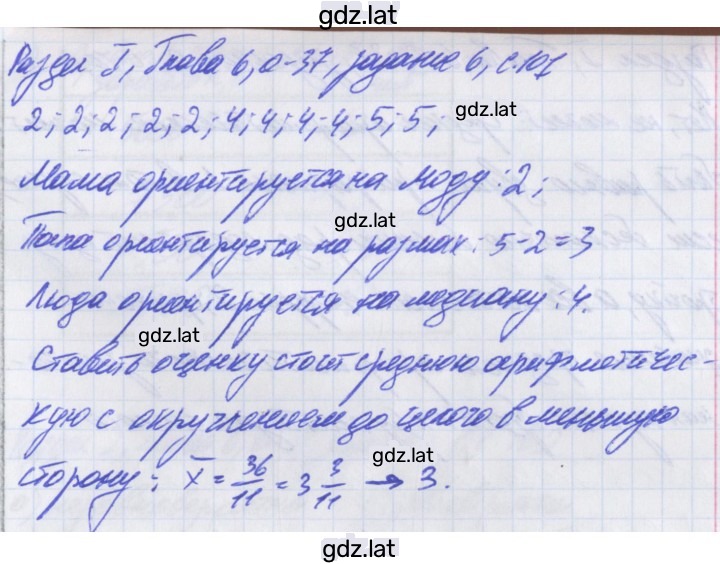 gdz.lat
Раздел I, Глава 6, О-37, задание 6, с.101
2; 2; 2; 2; 2; 4; 4; 4; 4; 5; 5; gdz.lat
Мама ориентируется на моду: 2;
gdz.lat
Папа ориентируется на размах: 5-2=3
Люда ориентируется на медиану: 4.
gdz.lat
Ставить оценку стоит среднюю арифметичес-
кую с округлением до целого в меньшую
gdz.lat
сторону: x̄ = 36/11 = 3 3/11 → 3.
gdz.lat
gdz.lat